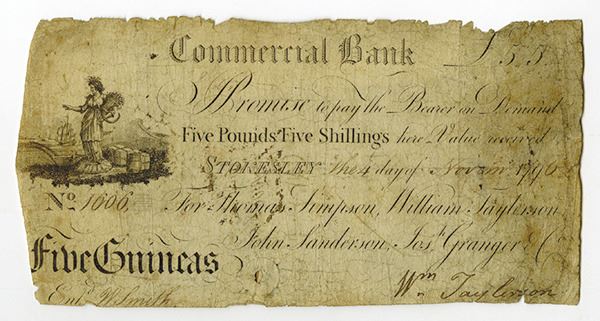 Commercial Bank £5,,5,,
I Promise to pay the Bearer on Demand
Five Pounds Five Shillings here Value received
STOKESLEY the 4 day of Novem 1796
No. 1006. For Thomas Simpson, William Taylerson
John Sanderson, Josh. Granger & Co.
Five Guineas
Wm Taylerson
Entd. W. Smith